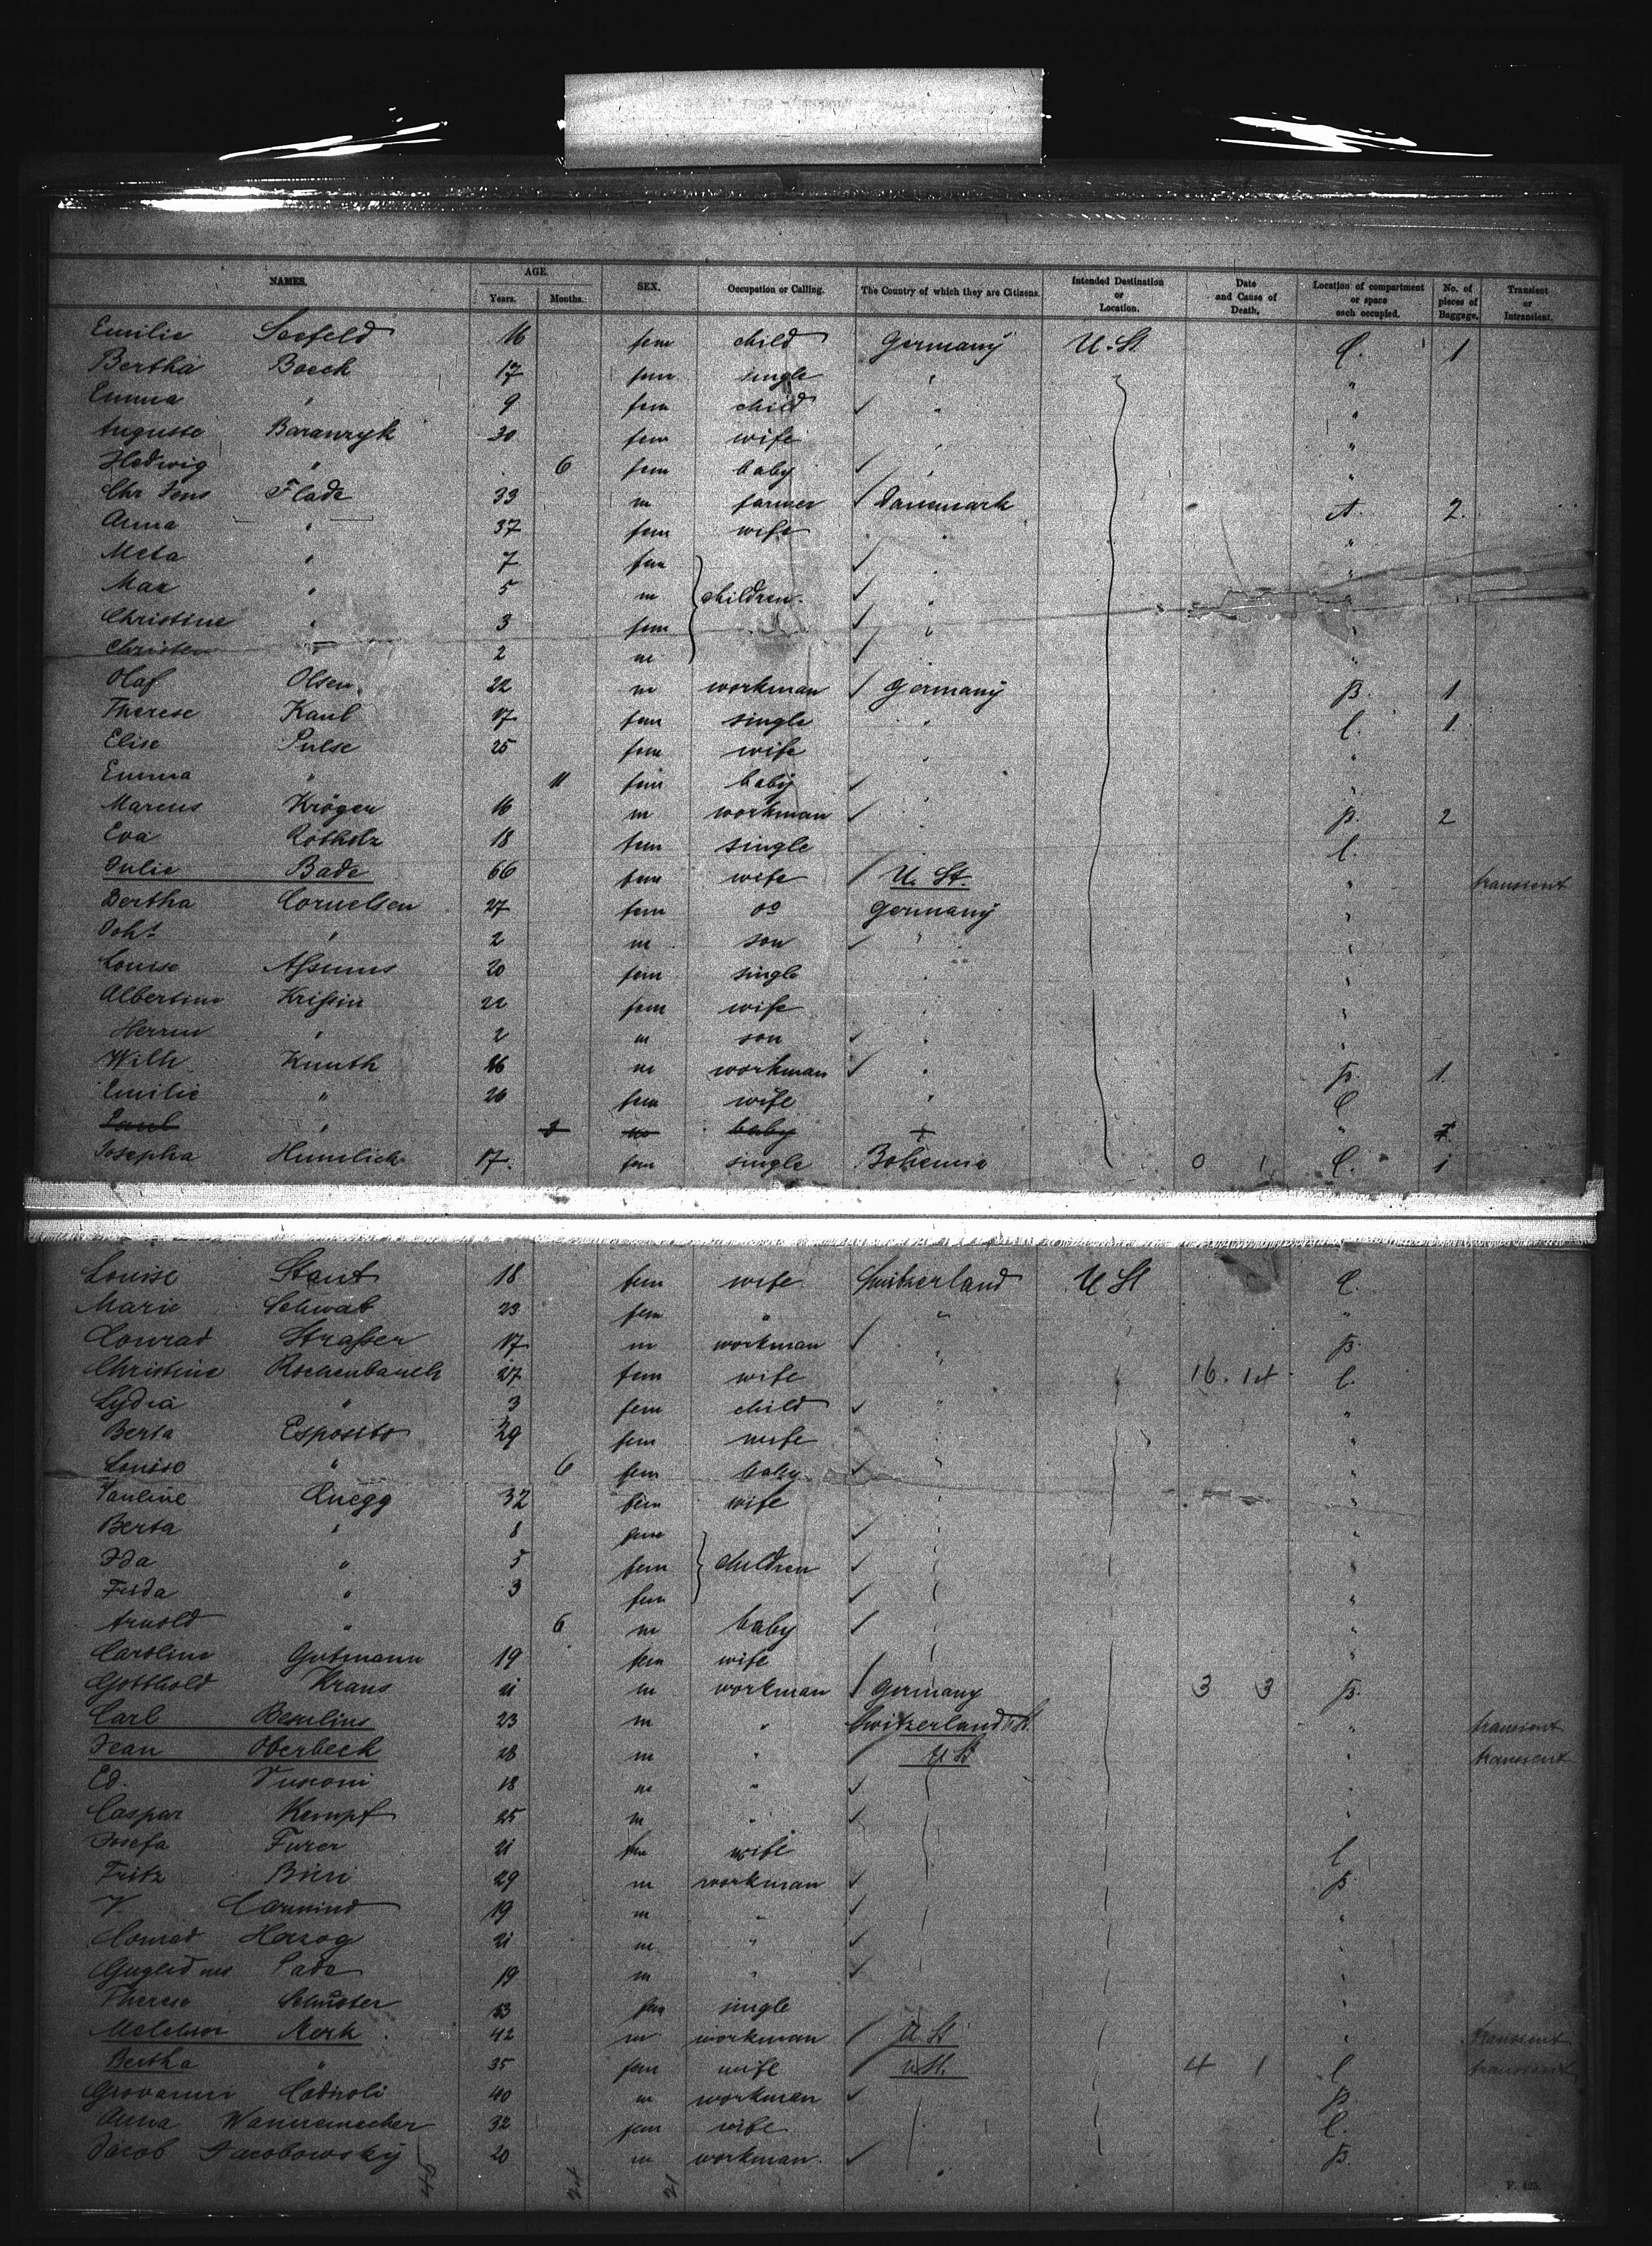 NAMES. AGE. SEX. Occupation or Calling. The Country of which they are Citizens. Intended Destination or Location. Date and Cause of Death. Location of compartment or space each occupied. No. of pieces of Baggage. Transient or Intransient.
Years. Months.
Emilie Seefeld 16 fem child Germany U. St. C. 1
Bertha Boeck 17 fem single " "
Emma " 9 fem child ✓ " "
Auguste Baranzyk 30 fem wife " "
Hedwig " 6 fem baby ✓ " "
Chr Jens Flade 33 m farmer ✓ Danemark A. 2.
Anna " 37 fem wife " "
Meta " 7 fem ✓ " "
Max " 5 m children. ✓ " "
Christine " 3 fem ✓ " "
Christen " 2 m ✓ " "
Olaf Olsen 22 m workman ✓ Germany B. 1
Therese Kaul 17 fem single " C. 1
Elise Pulse 25 fem wife " "
Emma " 11 fem baby ✓ " "
Marcus Kröger 16 m workman ✓ " B. 2
Eva Rotholz 18 fem single C.
Julie Bade 66 fem wife / U. St. " transient
Bertha Cornelsen 27 fem do Germany "
Joh. " 2 m son ✓ " "
Louise Assmus 20 fem single " "
Albertine Krissin 22 fem wife " "
Herrm " 2 m son ✓ " "
Wilh Knuth 26 m workman ✓ " B. 1.
Emilie " 26 fem wife " C
Paul " m baby "
Josepha 17. fem single Bohemia 0 1 C. 1
Louise 18 fem wife Switzerland U St C.
Marie Schwab 23 fem " " "
Conrad Strasser 17 m workman ✓ " B.
Christine Rochenbauch 27 fem wife 16. 1 C.
Lydia " 3 fem child ✓ " "
Berta Esposito 29 fem wife " "
Louise " 6 fem baby ✓ " "
Pauline 32 fem wife " "
Berta " 8 fem ✓ " "
Ida " 5 fem children ✓ "
Frida " 3 fem ✓ "
Arnold " 6 m baby ✓ "
Caroline Gutmann 19 fem wife "
Gotthold Kraus 21 m workman ✓ Germany 3 3 B.
Carl 23 m " Switzerland U St. " transient
Jean Oberbeck 28 m " / U St " transient
Ed. 18 m " ✓ "
Caspar Kempf 25 m " ✓ "
Josefa Furer 21 fem wife C
Fritz Büri 29 m workman ✓ B.
V. 19 m " ✓ "
Conrad Herzog 21 m " ✓ "
19 m " ✓ "
Therese Schuster fem single "
Melchior Kerk 42 m workman / U St " transient
Bertha " 35 fem wife / U. St. 4 1 C transient
Giovanni 40 m workman ✓ B
Anna Wannemacher 32 fem wife C.
Jacob Jacobowsky 20 m workman. ✓ B.